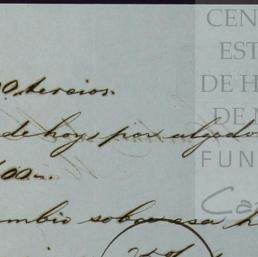 CEN
EST
DE H
DE M
FUN
Ca
00 tercios.
de hoy por algodo
00.
mbio sobre esa h